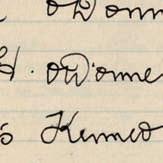 O'Donn
H. O'Donne
s Kenned